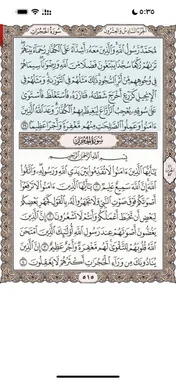 ٥:٣٥
الجزء السادس والعشرون سورة الحجرات
مُّحَمَّدٌ رَّسُولُ ٱللَّهِ وَٱلَّذِينَ مَعَهُۥٓ أَشِدَّآءُ عَلَى ٱلْكُفَّارِ رُحَمَآءُ بَيْنَهُمْ
تَرَىٰهُمْ رُكَّعًا سُجَّدًا يَبْتَغُونَ فَضْلًا مِّنَ ٱللَّهِ وَرِضْوَٰنًا سِيمَاهُمْ
فِى وُجُوهِهِم مِّنْ أَثَرِ ٱلسُّجُودِ ذَٰلِكَ مَثَلُهُمْ فِى ٱلتَّوْرَىٰةِ وَمَثَلُهُمْ فِى
ٱلْإِنجِيلِ كَزَرْعٍ أَخْرَجَ شَطْـَٔهُۥ فَـَٔازَرَهُۥ فَٱسْتَغْلَظَ فَٱسْتَوَىٰ عَلَىٰ
سُوقِهِۦ يُعْجِبُ ٱلزُّرَّاعَ لِيَغِيظَ بِهِمُ ٱلْكُفَّارَ وَعَدَ ٱللَّهُ ٱلَّذِينَ
ءَامَنُوا۟ وَعَمِلُوا۟ ٱلصَّٰلِحَٰتِ مِنْهُم مَّغْفِرَةً وَأَجْرًا عَظِيمًۢا ٢٩
سُورَةُ الحُجُرَاتِ
بِسْمِ ٱللَّهِ ٱلرَّحْمَٰنِ ٱلرَّحِيمِ
يَٰٓأَيُّهَا ٱلَّذِينَ ءَامَنُوا۟ لَا تُقَدِّمُوا۟ بَيْنَ يَدَىِ ٱللَّهِ وَرَسُولِهِۦ وَٱتَّقُوا۟
ٱللَّهَ إِنَّ ٱللَّهَ سَمِيعٌ عَلِيمٌ ١ يَٰٓأَيُّهَا ٱلَّذِينَ ءَامَنُوا۟ لَا تَرْفَعُوٓا۟
أَصْوَٰتَكُمْ فَوْقَ صَوْتِ ٱلنَّبِىِّ وَلَا تَجْهَرُوا۟ لَهُۥ بِٱلْقَوْلِ كَجَهْرِ بَعْضِكُمْ
لِبَعْضٍ أَن تَحْبَطَ أَعْمَٰلُكُمْ وَأَنتُمْ لَا تَشْعُرُونَ ٢ إِنَّ ٱلَّذِينَ
يَغُضُّونَ أَصْوَٰتَهُمْ عِندَ رَسُولِ ٱللَّهِ أُو۟لَٰٓئِكَ ٱلَّذِينَ ٱمْتَحَنَ
ٱللَّهُ قُلُوبَهُمْ لِلتَّقْوَىٰ لَهُم مَّغْفِرَةٌ وَأَجْرٌ عَظِيمٌ ٣ إِنَّ ٱلَّذِينَ
يُنَادُونَكَ مِن وَرَآءِ ٱلْحُجُرَٰتِ أَكْثَرُهُمْ لَا يَعْقِلُونَ ٤
٥١٥